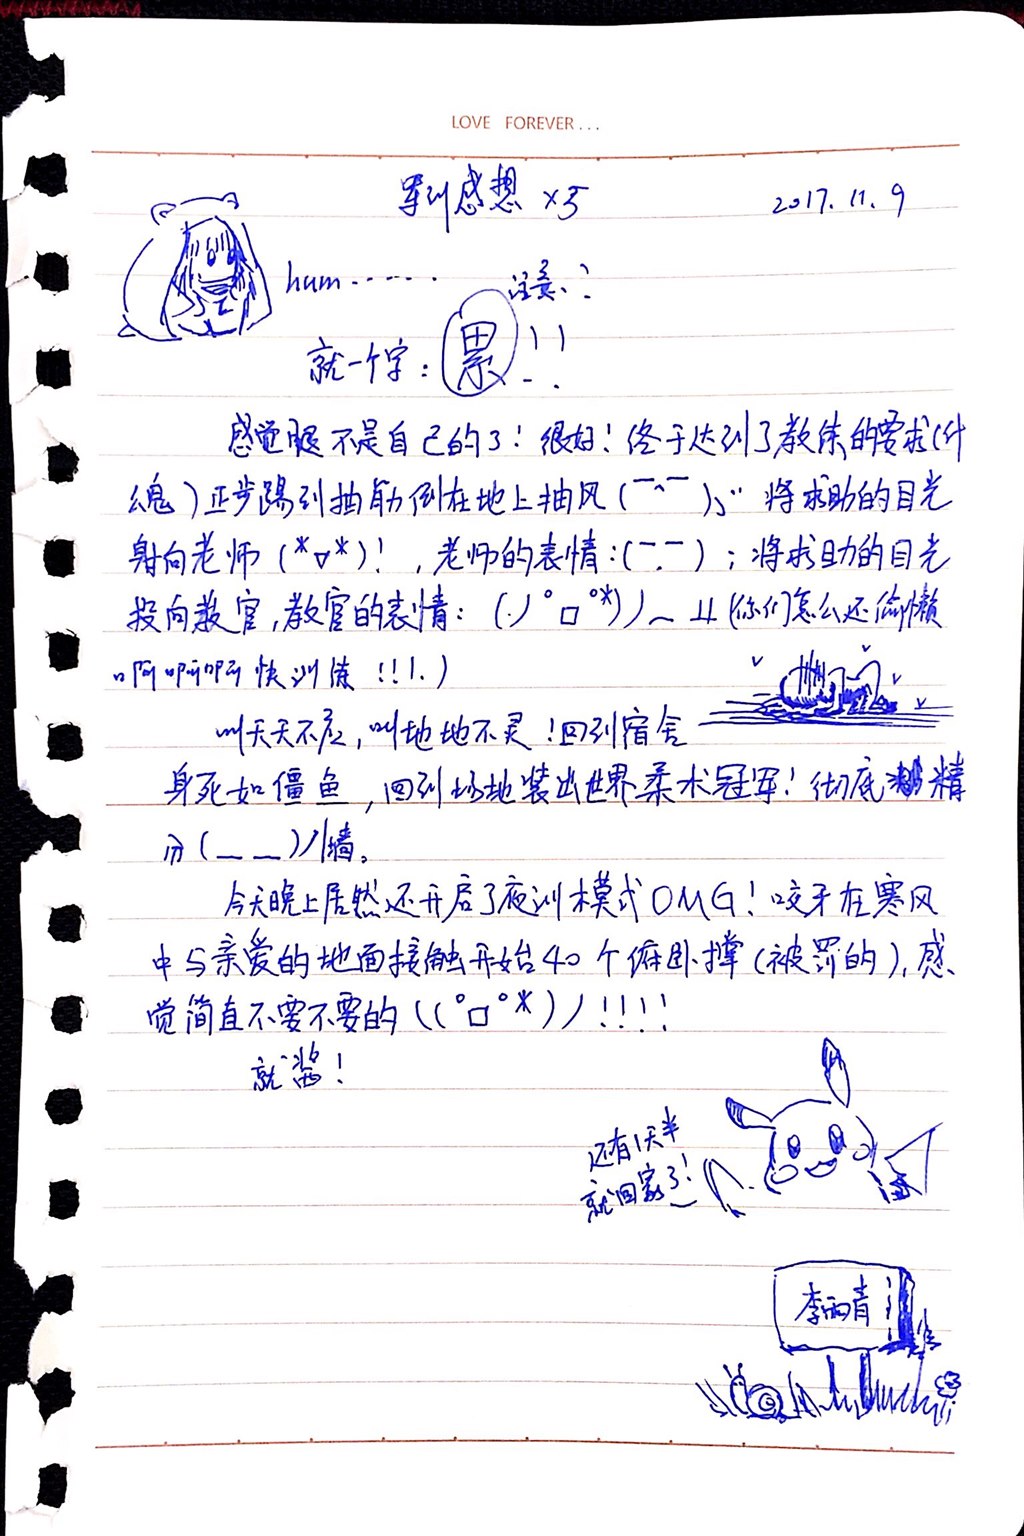 LOVE FOREVER...
军训感想 ×5 2017.11.9
hum······ 注意、:
就一个字：累!!
感觉腿不是自己的了！很好！终于达到了教练的要求(什
么鬼)正步踢到抽筋倒在地上抽风(￣^￣)、" 将求助的目光
射向老师(*▽*)！,老师的表情:(￣.￣)；将求助的目光
投向教官,教官的表情：(·)ノ°□°*))⌒ ㅛ(你们怎么还偷懒
啊啊啊快训练!!!.)
叫天天不应,叫地地不灵！回到宿舍
身死如僵鱼,回到场地装出世界柔术冠军！彻底精
分(＿ ＿)ノ|墙。
今天晚上居然还开启了夜训模式OMG！咬牙在寒风
中与亲爱的地面接触开始40个俯卧撑(被罚的),感
觉简直不要不要的((°□°*)ノ!!!!
就酱！
还有1天半
就回家了！
李雨青